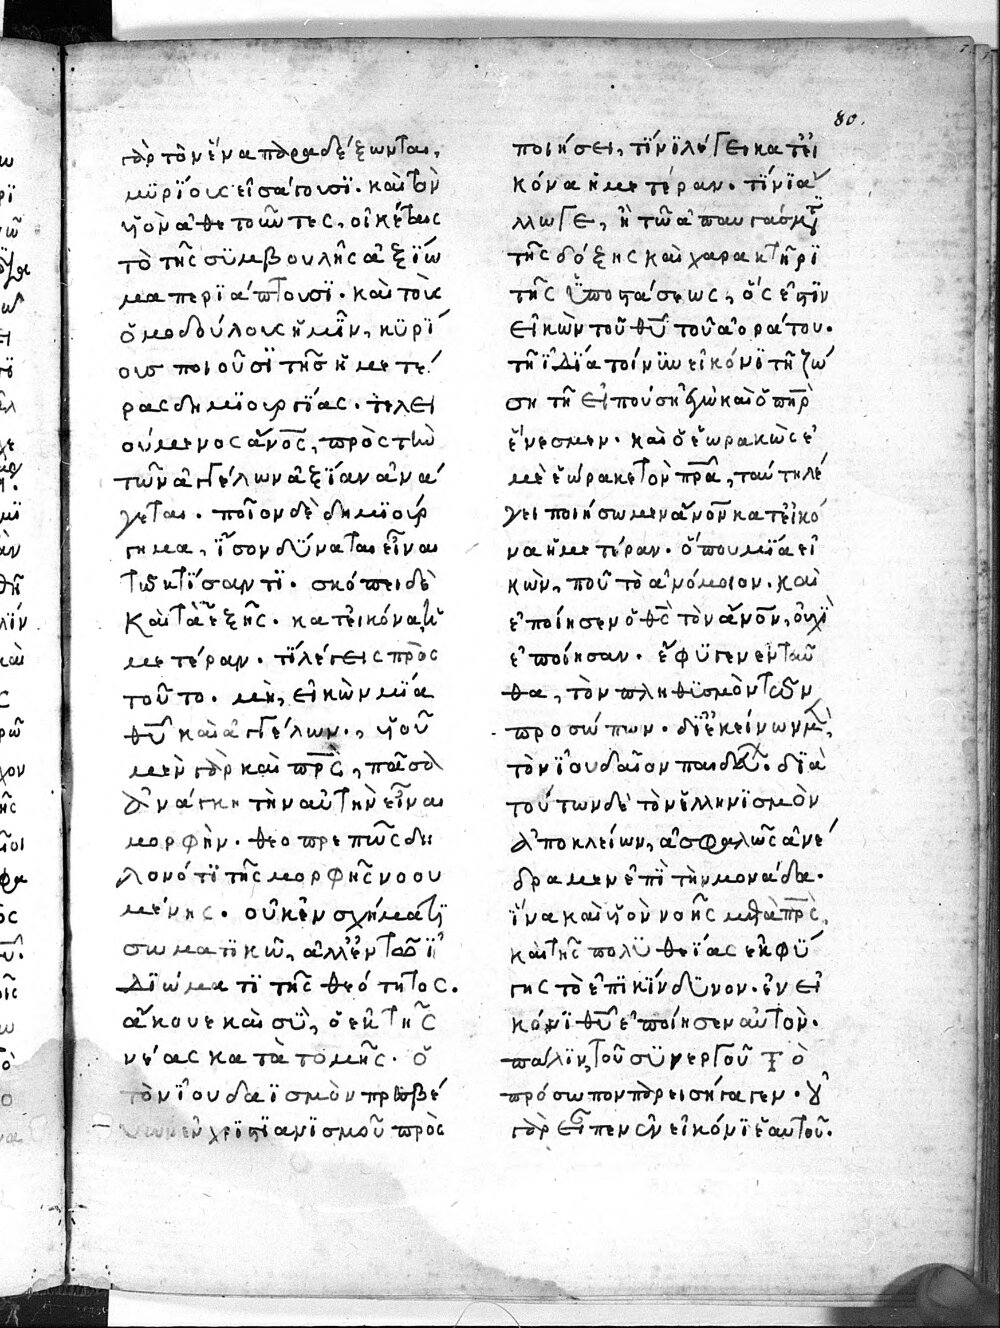 80.
γὰρ τὸν ἕνα παραδέξωνται,
μϋρίους εἰσάγουσϊ. καὶ τὸν
υἱὸν ἀθετοῦντες, οἰκέταις
τὸ τῆς σϋμβουλῆς ἀξίω
μα περϊάπτουσϊ. καὶ τοὺς
ὁμοδούλους ἡμῖν, κϋρί
ους ποιοῦσϊ τῆς ἡμετέ
ρας δημϊουργίας. τελει
ούμενος ἄνος, πρὸς τὴν
τῶν ἀγγέλων ἀξίαν ἀνά
γεται. ποῖον δὲ δημϊούρ
γημα, ἴσον δΰναται εἶναι
τῶ κτίσαντϊ. σκόπει δὲ
καὶ τὰ ἑξῆς. κατ εἰκόνα ἡ
μετέραν. τΐ λέγεις πρὸς
τοῦτο. μὴ, εἰκὼν μΐα
θυ καὶ ἀγγέλων., υἱοῦ
μὲν γὰρ καὶ πρς, πᾶσα
ἀνάγκη τὴν αὐτὴν εἶναι
μορφὴν. θεοπρεπῶς δη
λονότϊ τῆς μορφῆς νοου
μένης. οὐκ ἐν σχήματϊ
σωματϊκῶ, ἀλλ ἐν τῶ ἰ
δϊώματϊ τῆς θεότητος.
ἄκουε καὶ σὺ, ὁ ἐκ τῆς
νέας κατὰ τομῆς. ὁ
τὸν ϊουδαϊσμὸν πρεσβέ
ύων ἐν χρϊστϊανϊσμοῦ πρὸς
ποιήσει, τίνϊ λέγει κατ εἰ
κόνα ἡμετέραν. τίνϊ ἄ
λλω γε, ἢ τῶ ἀπαυγάσματϊ
τῆς δόξης καὶ χαρακτῆρϊ
τῆς ὑποστάσεως, ὅς ἐστϊν
εἰκὼν τοῦ θυ τοῦ ἀοράτου.
τῆ ϊδΐα τοίνϋν εἰκόνϊ τῆ ζώ
ση τῆ εἰπούση ἐγὼ καὶ ὁ πηρ
ἕν ἐσμεν. καὶ ὁ ἑωρακὼς ἐ
μὲ ἑώρακε τὸν πρα, ταύτη λέ
γει ποιήσωμεν ἄνον κατ εἰκό
να ἡμετέραν. ὅπου μΐα εἰ
κὼν, ποῦ τὸ ἀνόμοιον. καὶ
ἐποίησεν ὁ θς τὸν ἄνον, οὐχὶ
ἐποίησαν. ἔφϋγεν ἐνταῦ
θα, τὸν πληθϋσμὸν τῶν
προσώπων. δϊ ἐκείνων μὲν,
τὸν ϊουδαῖον παιδεύων. δϊὰ
τούτων δὲ τὸν ἑλληνϊσμὸν
ἀποκλείων, ἀσφαλῶς ἀνέ
δραμεν ἐπὶ τὴν μονάδα.
ἵνα καὶ υἱὸν νοῆς μετὰ πρς,
καὶ τῆς πολϋθεΐας ἐκφΰ
γης τὸ ἐπϊκίνδϋνον. ἐν εἰ
κόνϊ θυ ἐποίησεν αὐτὸν.
πάλϊν, τοῦ σϋνεργοῦ τὸ
πρόσωπον παρεισήγαγεν. οὐ
γὰρ εἶπεν ἐν εἰκόνϊ ἑαυτοῦ.